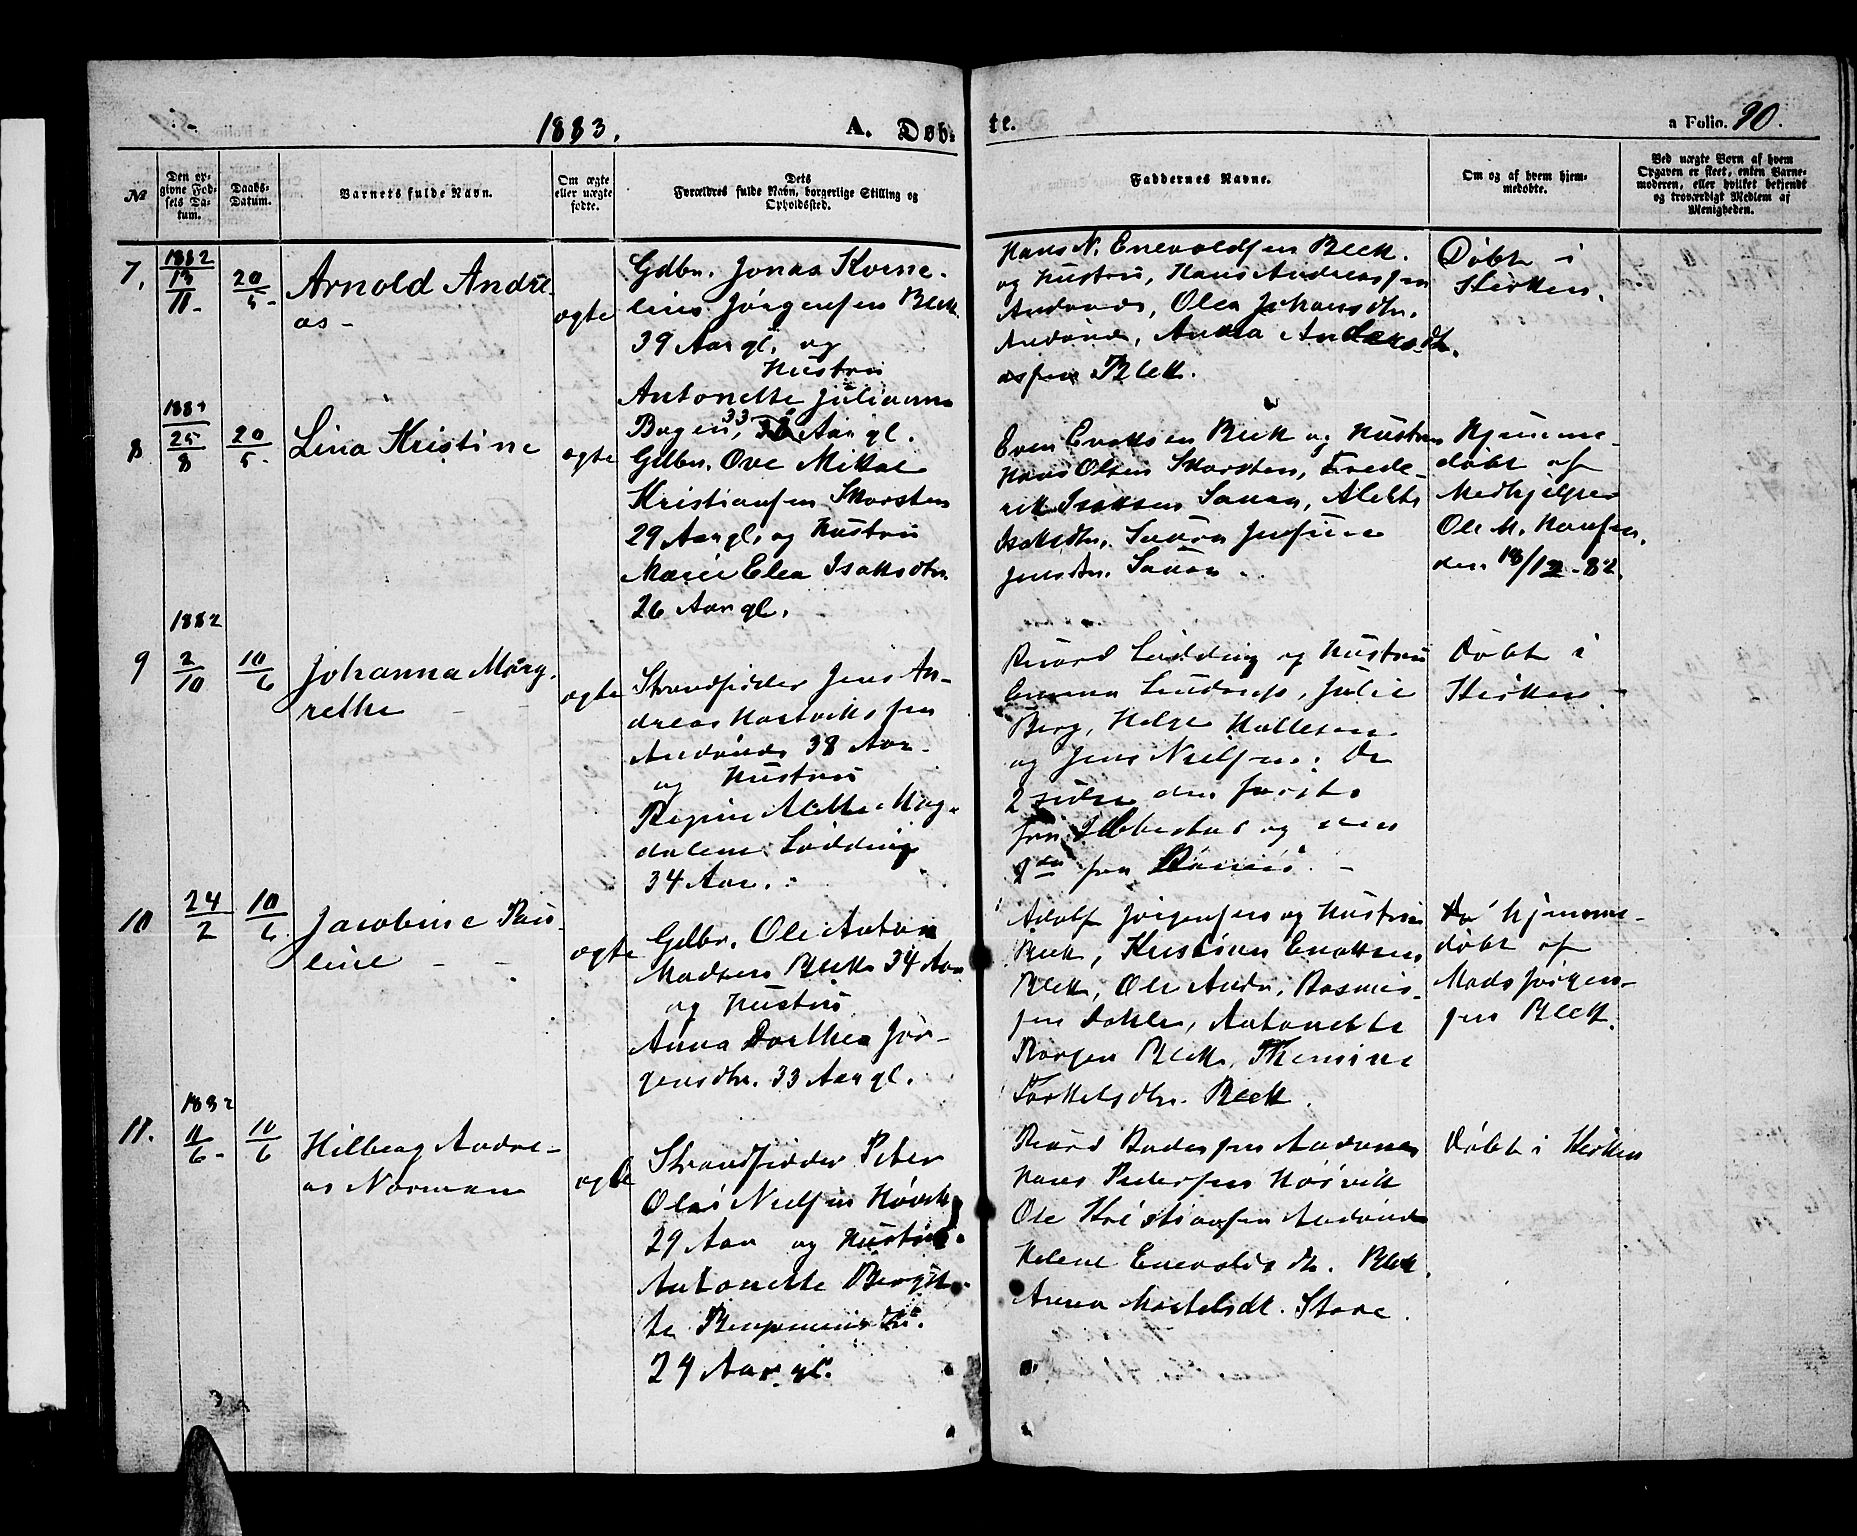 1883.
A. Døb-
te.
a Folio. 90.
No
Den op-
givne Fød-
sels Da-
tum.
Daabs-
Datum.
Barnets fulde Navn.
Om ægte
eller uægte
fødte.
Dets
Forældres fulde Navn, borgerlige Stilling og
Opholdssted.
Faddernes Navne.
Om og af hvem hjem-
medøbte.
Ved uægte Børn af hvem
Opgaven er skeet, enten Barne-
moderen, eller hvilket bekjendt
og troværdigt Medlem af
Menigheden.
7.
1882
13/11.
20/5.
Arnold Andre-
as -
ægte
Gdbr. Jonas Korne-
lius Jørgensen Bleik
39 Aar gl. og
Hustru
Antonette Julianna
Bugen, 33 Aar gl.
Hans N. Enevoldsen Bleik.
og Hustru, Hans Andreassen
Andenæs, Olea Johansdtr.
Andenæs, Anna Andersdtr.
Bleik.
Døbt i
Kirken.
8
25/8
20/5.
Lina Kristine
ægte
Gdbr. Ove Mikal
Kristiansen Skarsten
29 Aar gl. og Hustru
Marie Elea Isaksdtr.
26 Aar gl.
Even Enoksen Bleik og Hustru
Hans Olsen Skarsten, Frede-
rik Isaksen Saura, Alette
Isaksdtr. Saura
Jensdtr. Saura.
Hjemme-
døbt af
Medhjelper
Ole M. Hansen.
den 18/12-82.
9
1882
2/10
10/6
Johanna Marg-
rethe
ægte
Strandsidder Jens An-
dreas Hartviksen
Andenæs 38 Aar
og Hustru
Regine Alette Mag-
dalene Lødding
34 Aar.
Rikard Lødding og Hustru
Julie
Berg, Helge Hallesen
og Jens Nielsen; De
2 sidste den første
fra Ibbestad og den
2den fra
Døbt i
Kirken.
10
24/2
10/6
Jacobine Pau-
line
ægte
Gdbr. Ole Anton
Madsen Bleik 34 Aar
og Hustru
Anna Dorthea Jør-
gensdtr. 33 Aar gl.
Adolf Jørgensen og Hustru
Bleik, Kristian Enoksen
Bleik, Ole Andr. Rasmus-
sen Dahle, Antonette
Bleik, Thomine
Torkelsdtr. Bleik.
Hjemme-
døbt af
Mads Jørgen-
sen Bleik.
11.
1882
11/6.
10/6
Hilberg Andre-
as Norman
ægte
Strandsidder Peter
Olai Nielsen Høivik
29 Aar og Hustru
Antonette Bergit-
te Benjamins dtr.
24 Aar gl.
Rikard Pedersen Andenæs
Hans Pedersen Høivik
Ole Kristiansen Andenæs
Helene Enevolds dtr. Bleik.
Anna Martelsdt. Stave.
Døbt i Kirken